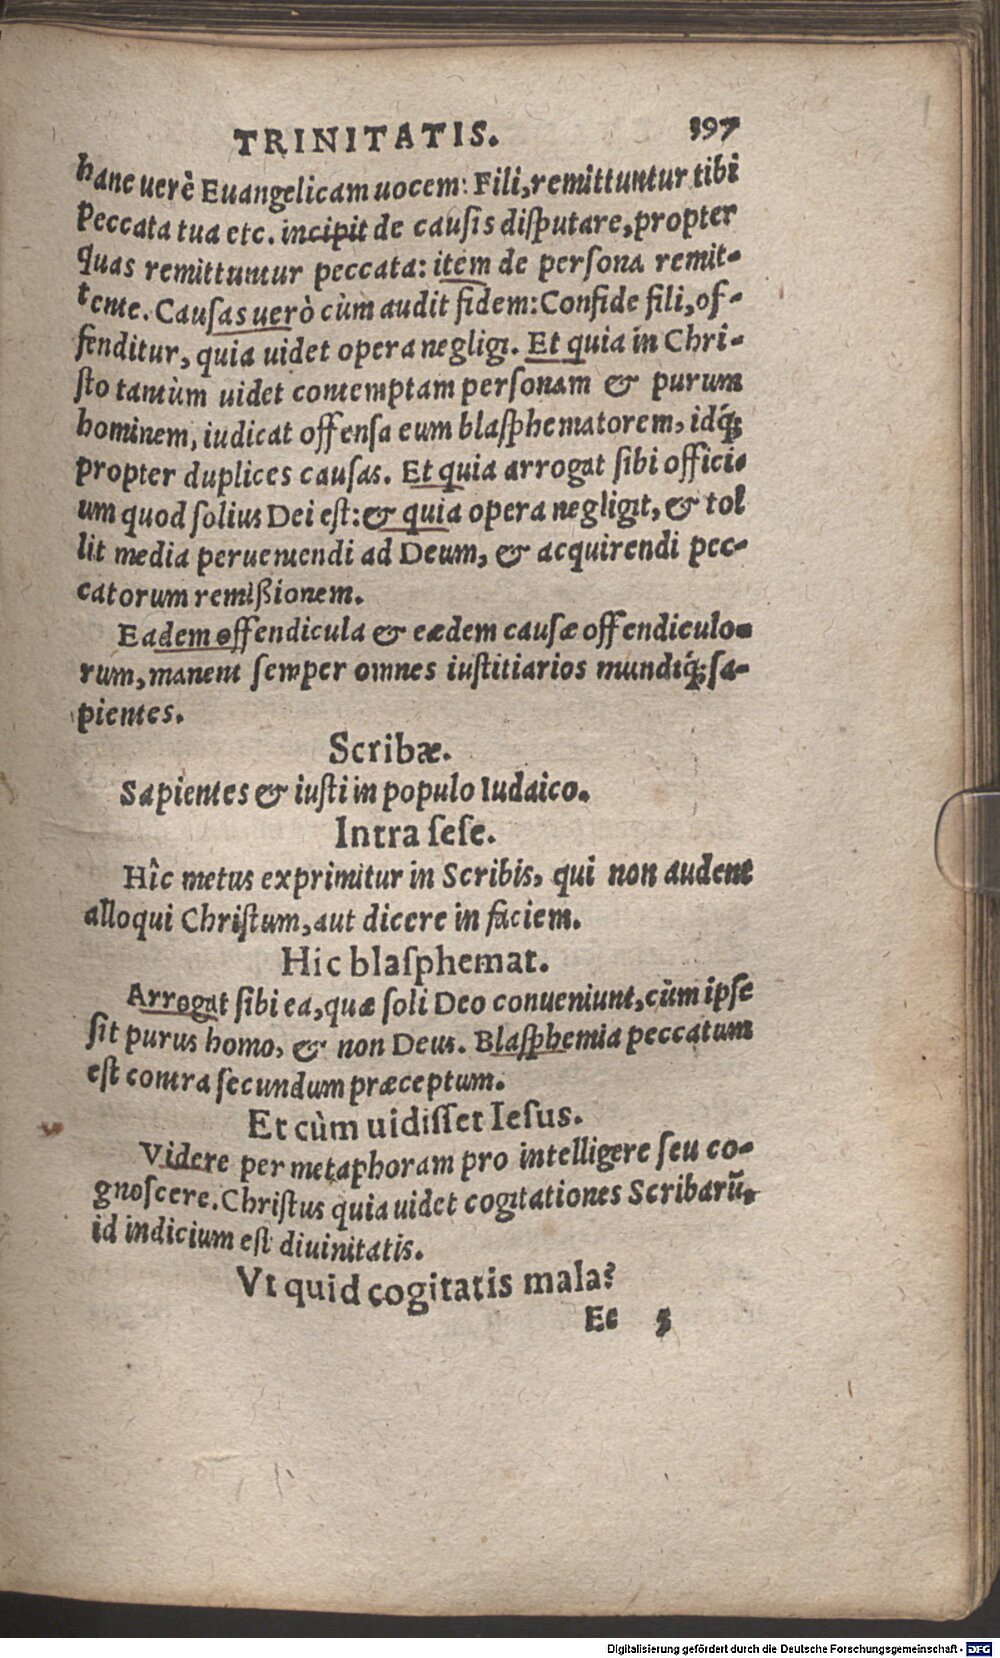 TRINITATIS. 397
hanc uerè Euangelicam uocem: Fili, remittuntur tibi
peccata tua etc. incipit de causis disputare, propter
quas remittuntur peccata: item de persona remit-
tente. Causas uerò cùm audit fidem: Confide fili, of-
fenditur, quia uidet opera negligi. Et quia in Chri-
sto tantùm uidet contemptam personam & purum
hominem, iudicat offensa eum blasphematorem, idq́;
propter duplices causas. Et quia arrogat sibi offici-
um quod solius Dei est: & quia opera negligit, & tol
lit media perueniendi ad Deum, & acquirendi pec-
catorum remißionem.
Eadem offendicula & eædem causæ offendiculo-
rum, manent semper omnes iustitiarios mundiq́; sa-
pientes.
Scribæ.
Sapientes & iusti in populo Iudaico.
Intra sese.
Hîc metus exprimitur in Scribis, qui non audent
alloqui Christum, aut dicere in faciem.
Hic blasphemat.
Arrogat sibi ea, quæ soli Deo conueniunt, cùm ipse
sit purus homo, & non Deus. Blasphemia peccatum
est contra secundum præceptum.
Et cùm uidisset Iesus.
Videre per metaphoram pro intelligere seu co-
gnoscere. Christus quia uidet cogitationes Scribarũ,
id indicium est diuinitatis.
Vt quid cogitatis mala?
Ee 5
Digitalisierung gefördert durch die Deutsche Forschungsgemeinschaft - DFG